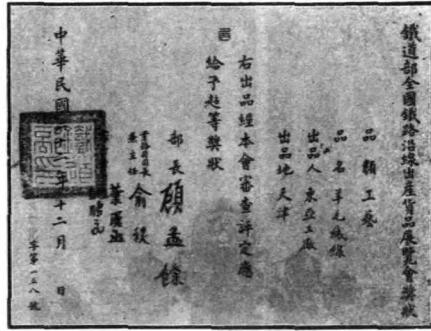 鐵道部全國鐵路沿線出產貨品展覽會獎狀
品類 工藝
品名 羊毛絨線
出品人 東亞工廠
出品地 天津
右出品經本會審查評定應
給予超等獎狀
部長 顧孟餘
業務司長
兼主任 俞棪
葉
中華民國 二年十二月 日
字第一五八號